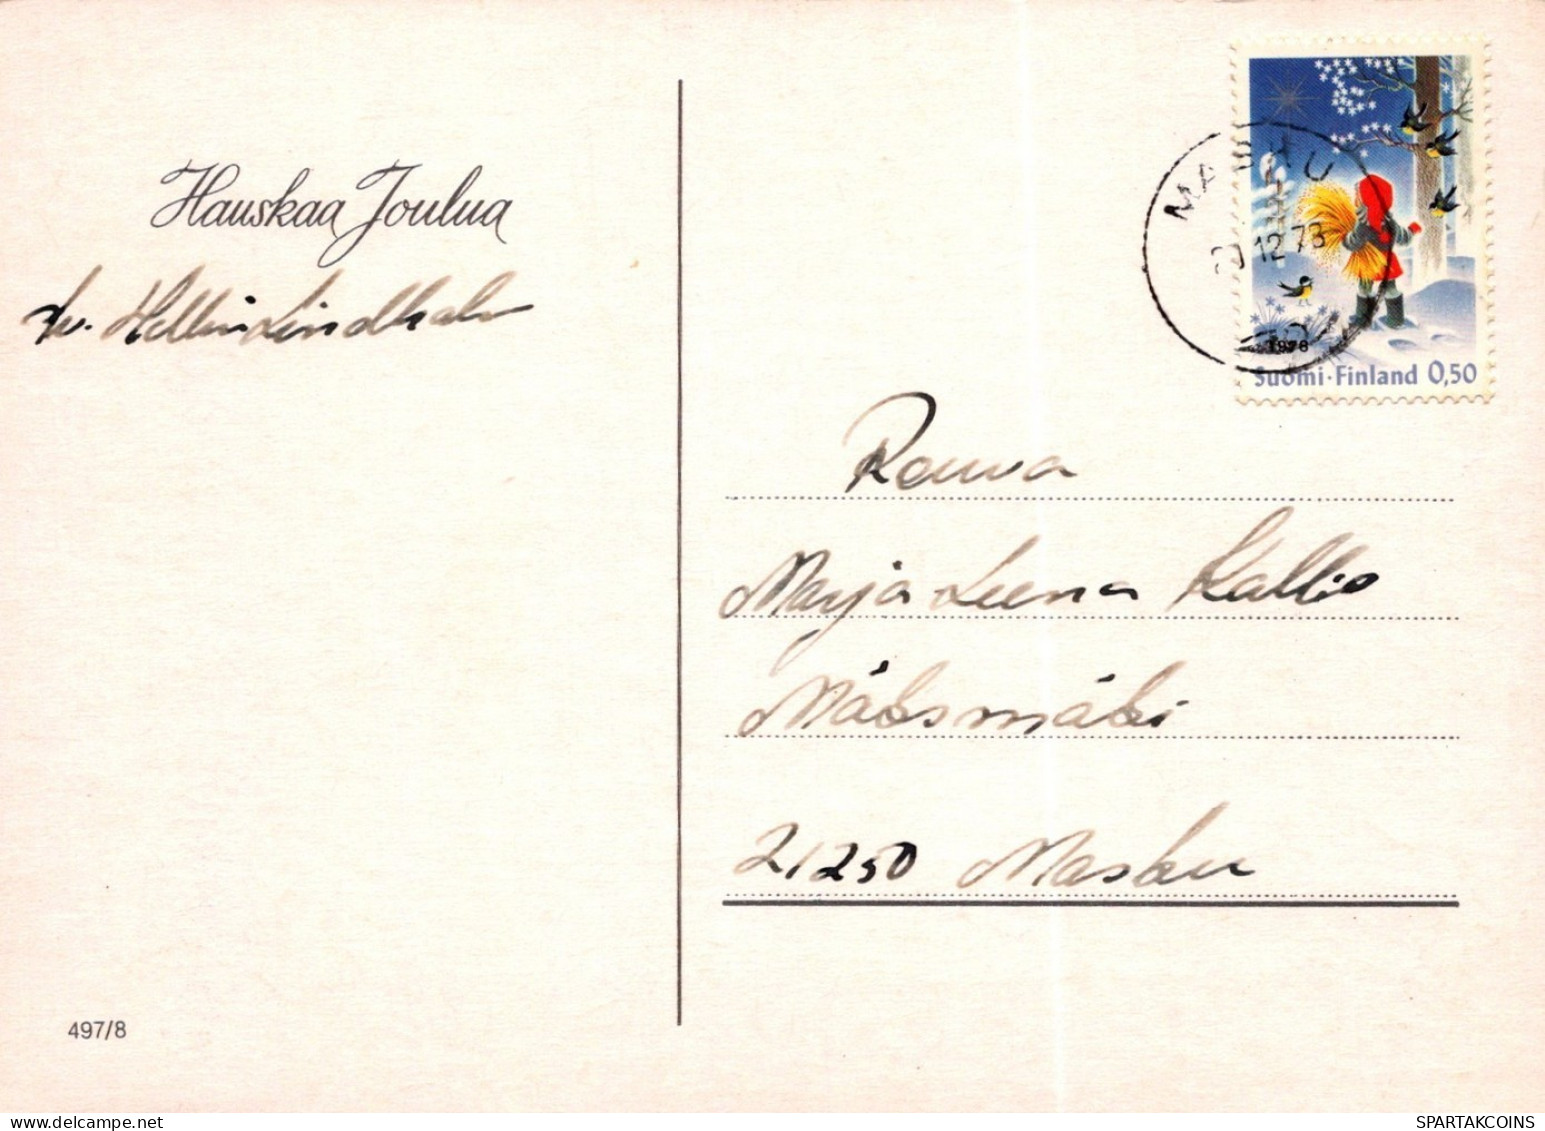 Hauskaa Joulua
tv. Hellin Lindholm
MASKU
12.78
1978
Suomi·Finland 0,50
Rouva
Marja Leena Kallio
Mäksmäki
21250 Masku
497/8
SPARTAKCOINS